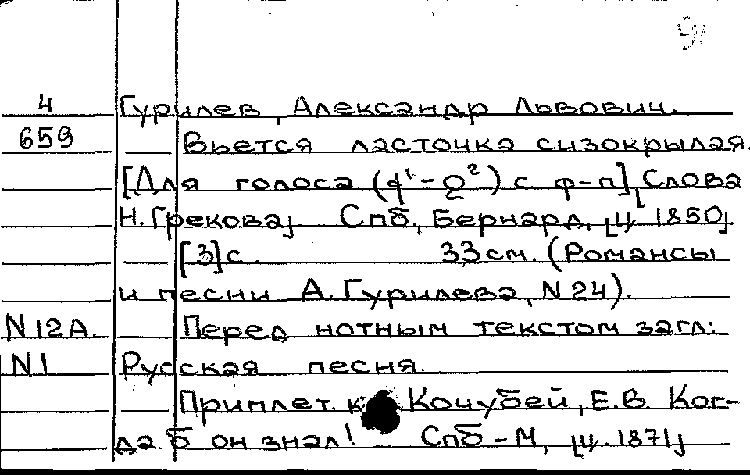 4 Гурилев, Александр Львович.
659 Вьется ласточка сизокрылая.
[Для голоса (f¹-g²) с ф-п] [Слова
Н. Грекова] Спб, Бернард, [ц. 1850]
[3] с. 33 см. (Романсы
и песни А. Гурилева, N 24).
N 12А. Перед нотным текстом загл:
N 1 Русская песня.
Приплет. к Кочубей, Е.В. Ког-
да б он знал! Спб-М, [ц. 1871]